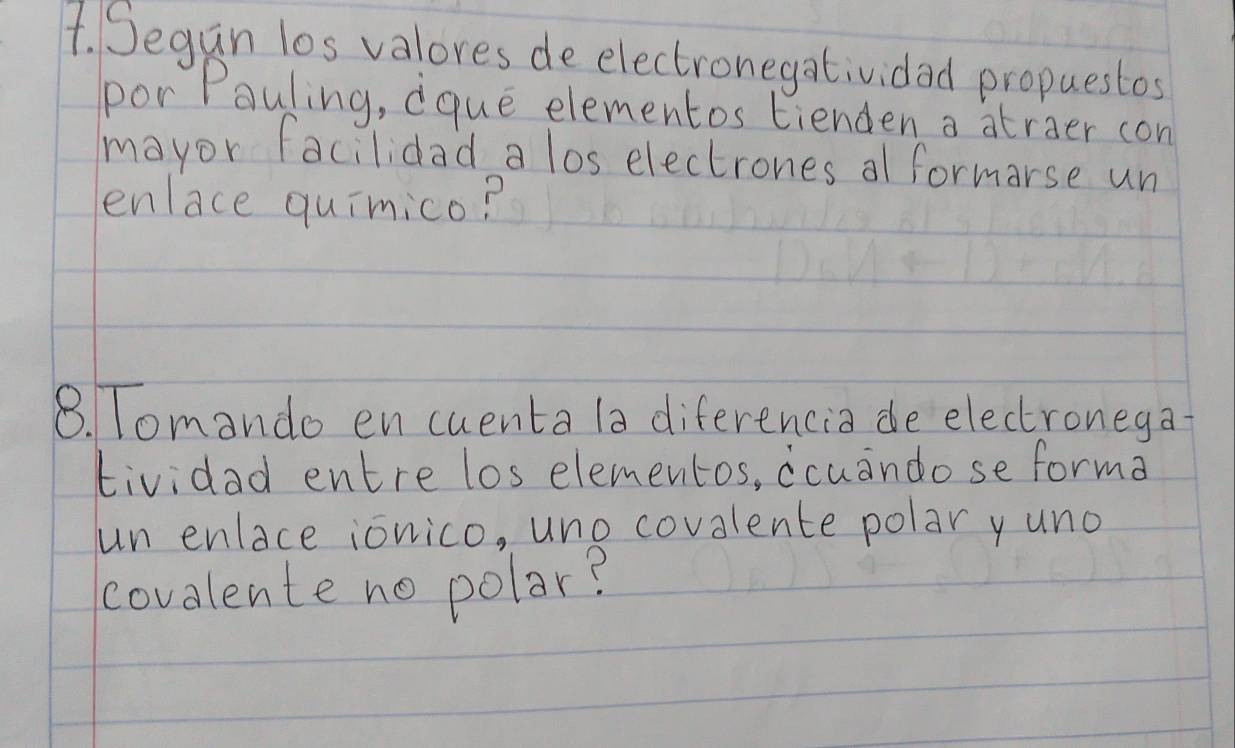 7. Según los valores de electronegatividad propuestos
por Pauling, ¿qué elementos tienden a atraer con
mayor facilidad a los electrones al formarse un
enlace químico?
8. Tomando en cuenta la diferencia de electronega-
tividad entre los elementos, ¿cuándo se forma
un enlace iónico, uno covalente polar y uno
covalente no polar?